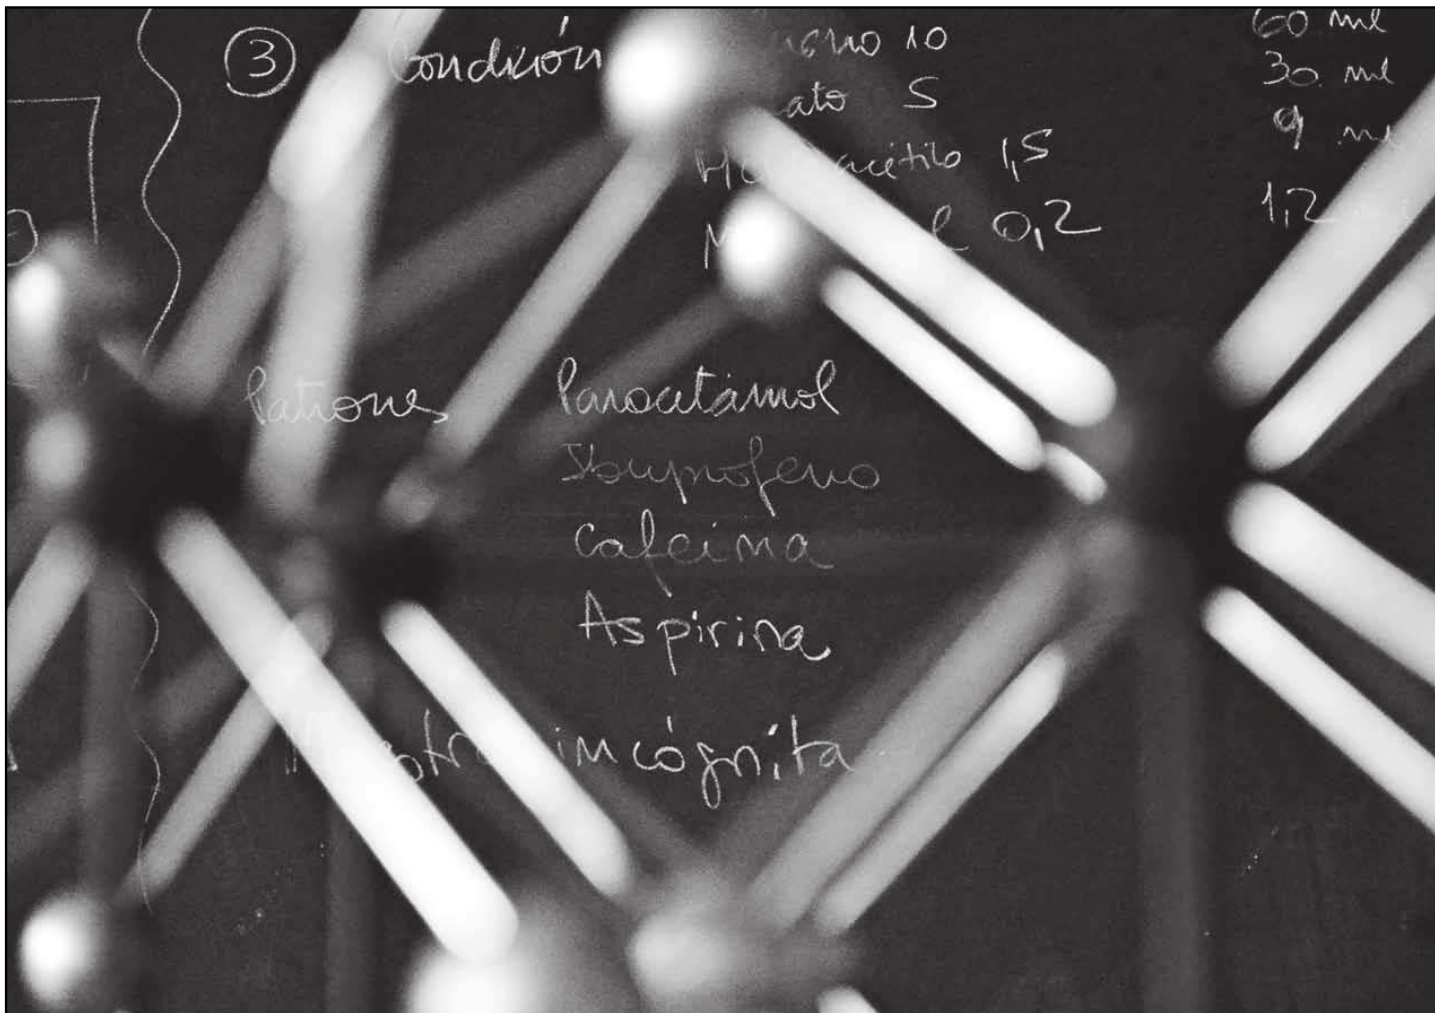 ③ Condición
10 60 ml
5 30 ml
1,5 9 ml
0,2 1,2
Patrones Paracetámol
Ibuprofeno
Cafeina
Aspirina
incógnita